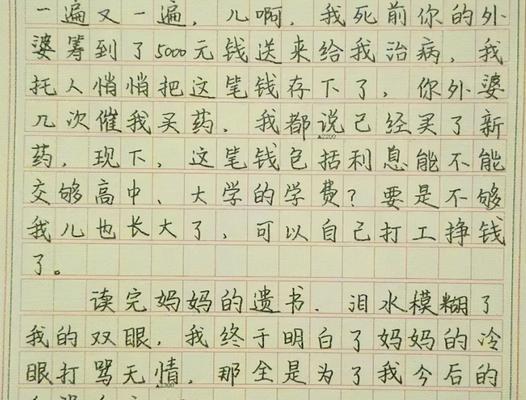 一遍又一遍，儿啊，我死前你的外
婆筹到了5000元钱送来给我治病，我
托人悄悄把这笔钱存下了，你外婆
几次催我买药，我都说已经买了新
药，现下，这笔钱包括利息能不能
交够高中、大学的学费？要是不够
我儿也长大了，可以自己打工挣钱
了。
读完妈妈的遗书，泪水模糊了
我的双眼，我终于明白了妈妈的冷
眼打骂无情，那全是为了我今后的